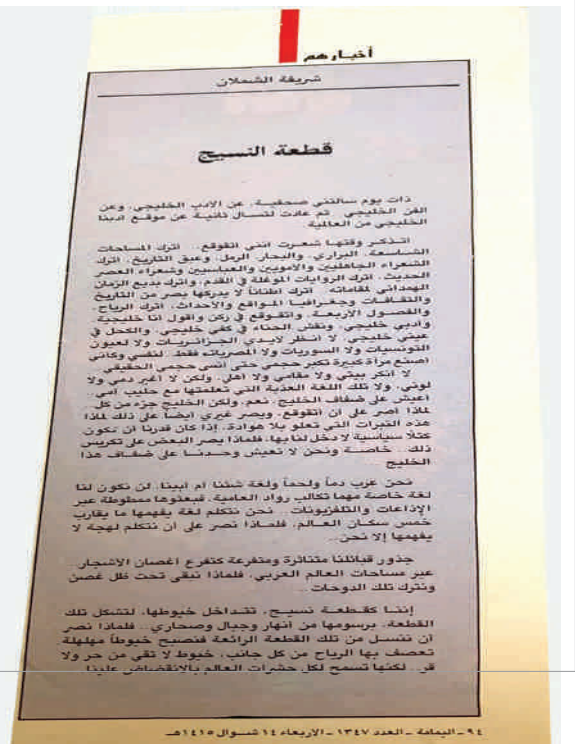 أخبارهم
شريفة الشملان
قطعة النسيج
ذات يوم سألتني صحفية، عن الأدب الخليجي، وعن
الفن الخليجي. ثم عادت لتسأل ثانية عن موقع أدبنا
الخليجي من العالمية.
أتذكر وقتها شعرت أنني أتقوقع.. أترك المساحات
الشاسعة، البراري، والبحار الرمل، وعبق التاريخ، أترك
الشعراء الجاهليين والأمويين والعباسيين وشعراء العصر
الحديث، أترك الروايات الموغلة في القدم، وأترك بديع الزمان
الهمداني لمقاماته. أترك أطناناً لا يدركها بصر من التاريخ
والثقافات وجغرافيا المواقع والأحداث، أترك الرياح،
والفصول الأربعة. وأتقوقع في ركن وأقول أنا خليجية
وأدبي خليجي، ونقش الحناء في كفي خليجي، والكحل في
عيني خليجي، لا أنظر لأيدي الجزائريات ولا لعيون
التونسيات ولا السوريات ولا المصريات، فقط لنفسي وكأني
أصنع مرآة كبيرة تكبر حجمي حتى أنسى حجمي الحقيقي.
لا أنكر بيتي ولا مقامي ولا أهلي، ولكن لا أغير دمي ولا
لوني، ولا تلك اللغة العذبة التي تعلمتها مع حليب أمي..
أعيش على ضفاف الخليج، نعم، ولكن الخليج جزء من كل..
لماذا أصر على أن أتقوقع، ويصر غيري أيضاً على ذلك لماذا
هذه النبرات التي تعلو بلا هوادة، إذا كان قدرنا أن نكون
كتلاً سياسية لا دخل لنا بها، فلماذا يصر البعض على تكريس
ذلك.. خاصة ونحن لا نعيش وحدنا على ضفاف هذا
الخليج
نحن عرب دماً ولحماً ولغة شئنا أم أبينا، لن نكون لنا
لغة خاصة مهما تكالب رواد العامية، فبعثوها ممطوطة عبر
الإذاعات والتلفزيونات.. نحن نتكلم لغة يفهمها ما يقارب
خمس سكان العالم، فلماذا نصر على أن نتكلم لهجة لا
يفهمها إلا نحن..
جذور قبائلنا متناثرة ومتفرعة كتفرع أغصان الأشجار..
عبر مساحات العالم العربي، فلماذا نبقى تحت ظل غصن
ونترك تلك الدوحات..
إننا كقطعة نسيج، تتداخل خيوطها، لتشكل تلك
القطعة، برسومها من أنهار وجبال وصحاري.. فلماذا نصر
أن ننسل من تلك القطعة الرائعة فنصبح خيوطاً مهلهلة
تعصف بها الرياح من كل جانب، خيوط لا تقي من حر ولا
قر.. لكنها تسمح لكل حشرات العالم بالانقضاض علينا
٩٤ - اليمامة - العدد ١٣٤٧ - الأربعاء ١٤ شوال ١٤١٥هـ